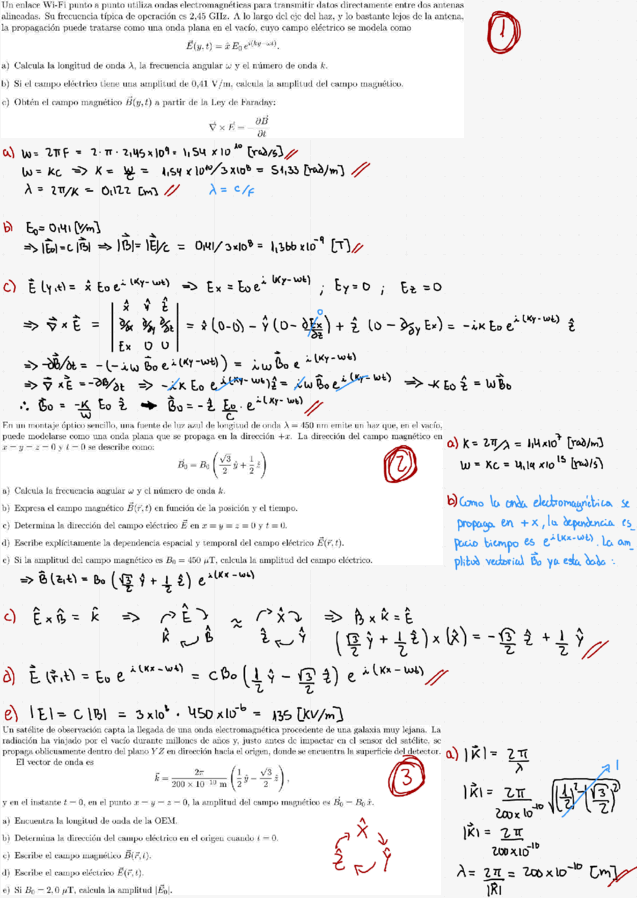 Un enlace Wi-Fi punto a punto utiliza ondas electromagnéticas para transmitir datos directamente entre dos antenas
alineadas. Su frecuencia típica de operación es 2,45 GHz. A lo largo del eje del haz, y lo bastante lejos de la antena,
la propagación puede tratarse como una onda plana en el vacío, cuyo campo eléctrico se modela como
E⃗(y, t) = x̂ E₀ e^{i(ky−ωt)}.
①
a) Calcula la longitud de onda λ, la frecuencia angular ω y el número de onda k.
b) Si el campo eléctrico tiene una amplitud de 0,41 V/m, calcula la amplitud del campo magnético.
c) Obtén el campo magnético B⃗(y, t) a partir de la Ley de Faraday:
∇⃗ × E⃗ = −∂B⃗/∂t
a) ω = 2πf = 2·π·2,45×10⁹ = 1,54 × 10¹⁰ [rad/s]
ω = kc ⇒ k = ω/c = 1,54×10¹⁰/3×10⁸ = 51,33 [rad/m]
λ = 2π/k = 0,122 [m] λ = c/f
b) E₀ = 0,41 [V/m]
⇒ |E⃗₀| = c|B⃗| ⇒ |B⃗| = |E⃗|/c = 0,41/3×10⁸ = 1,366×10⁻⁹ [T]
c) E⃗(y,t) = x̂ E₀ e^{i(ky−ωt)} ⇒ Ex = E₀ e^{i(ky−ωt)} ; Ey = 0 ; Ez = 0
⇒ ∇⃗ × E⃗ = | x̂ ŷ ẑ ; ∂/∂x ∂/∂y ∂/∂z ; Ex 0 0 | = x̂(0−0) − ŷ(0 − ∂Ex/∂z) + ẑ(0 − ∂/∂y Ex) = −ik E₀ e^{i(ky−ωt)} ẑ
⇒ −∂B⃗/∂t = −(−iω B⃗₀ e^{i(ky−ωt)}) = iω B⃗₀ e^{i(ky−ωt)}
⇒ ∇⃗ × E⃗ = −∂B/∂t ⇒ −ik E₀ e^{i(ky−ωt)} ẑ = iω B⃗₀ e^{i(ky−ωt)} ⇒ −k E₀ ẑ = ω B⃗₀
∴ B⃗₀ = −k/ω E₀ ẑ → B⃗₀ = −ẑ E₀/c · e^{i(ky−ωt)}
En un montaje óptico sencillo, una fuente de luz azul de longitud de onda λ = 450 nm emite un haz que, en el vacío,
puede modelarse como una onda plana que se propaga en la dirección +x. La dirección del campo magnético en
x = y = z = 0 y t = 0 se describe como:
B⃗₀ = B₀ (√3/2 ŷ + 1/2 ẑ)
②
a) Calcula la frecuencia angular ω y el número de onda k.
b) Expresa el campo magnético B⃗(r⃗, t) en función de la posición y el tiempo.
c) Determina la dirección del campo eléctrico E⃗ en x = y = z = 0 y t = 0.
d) Escribe explícitamente la dependencia espacial y temporal del campo eléctrico E⃗(r⃗, t).
e) Si la amplitud del campo magnético es B₀ = 450 μT, calcula la amplitud del campo eléctrico.
a) k = 2π/λ = 1,4×10⁷ [rad/m]
ω = kc = 4,19 ×10¹⁵ [rad/s]
b) Como la onda electromagnética se
propaga en +x, la dependencia es
pacio tiempo es e^{i(kx−ωt)}. La am
plitud vectorial B⃗₀ ya esta dada:
⇒ B⃗(z,t) = B₀ (√3/2 ŷ + 1/2 ẑ) e^{i(kx−ωt)}
c) Ê × B̂ = k̂ ⇒ Ê k̂ B̂ ≈ x̂ ẑ ŷ ⇒ B̂ × k̂ = Ê
(√3/2 ŷ + 1/2 ẑ) × (x̂) = −√3/2 ẑ + 1/2 ŷ
d) E⃗(r⃗,t) = E₀ e^{i(kx−ωt)} = cB₀ (1/2 ŷ − √3/2 ẑ) e^{i(kx−ωt)}
e) |E| = c|B| = 3×10⁸ · 450×10⁻⁶ = 135 [kV/m]
Un satélite de observación capta la llegada de una onda electromagnética procedente de una galaxia muy lejana. La
radiación ha viajado por el vacío durante millones de años y, justo antes de impactar en el sensor del satélite, se
propaga oblicuamente dentro del plano YZ en dirección hacia el origen, donde se encuentra la superficie del detector.
El vector de onda es
k⃗ = 2π/(200 × 10⁻¹⁰ m) (1/2 ŷ − √3/2 ẑ),
③
y en el instante t = 0, en el punto x = y = z = 0, la amplitud del campo magnético es B⃗₀ = B₀ x̂.
a) Encuentra la longitud de onda de la OEM.
b) Determina la dirección del campo eléctrico en el origen cuando t = 0.
c) Escribe el campo magnético B⃗(r⃗, t).
d) Escribe el campo eléctrico E⃗(r⃗, t).
e) Si B₀ = 2,0 μT, calcula la amplitud |E⃗₀|.
x̂
ẑ ŷ
a) |k⃗| = 2π/λ
|k⃗| = 2π/(200×10⁻¹⁰) √((1/2)² − (√3/2)²) 1
|k⃗| = 2π/(200×10⁻¹⁰)
λ = 2π/|k⃗| = 200×10⁻¹⁰ [m]